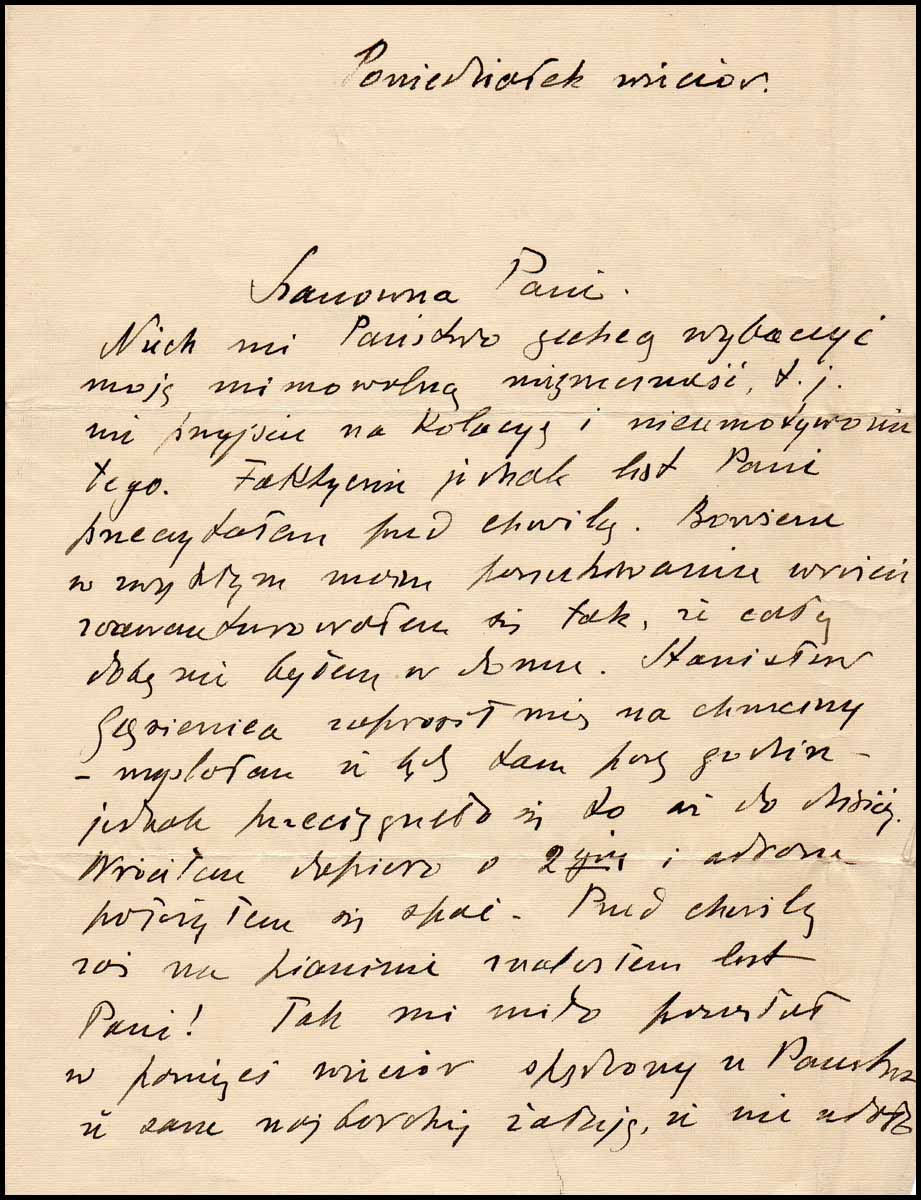 Poniedziałek wieczór.
Szanowna Pani.
Niech mi Państwo zechcą wybaczyć
moją mimowolną niegrzeczność, t. j.
nie przyjście na kolację i nieumotywowanie
tego. Faktycznie jednak list Pani
przeczytałem przed chwilą. Bowiem
w zwykłym moim
zaawanturowałem się tak, że całą
dobę nie byłem w domu. Stanisław
Gąsienica zaprosił mię na chrzciny
– myślałem że tam parę godzin –
jednak przeciągnęło się to aż do dzisiaj.
Wróciłem dopiero o 2 i
położyłem się spać – Przed chwilą
zaś na pianinie znalazłem list
Pani! Tak mi miło pozostał
w pamięci wieczór spędzony u Państwa
że sam najbardziej żałuję, że nie